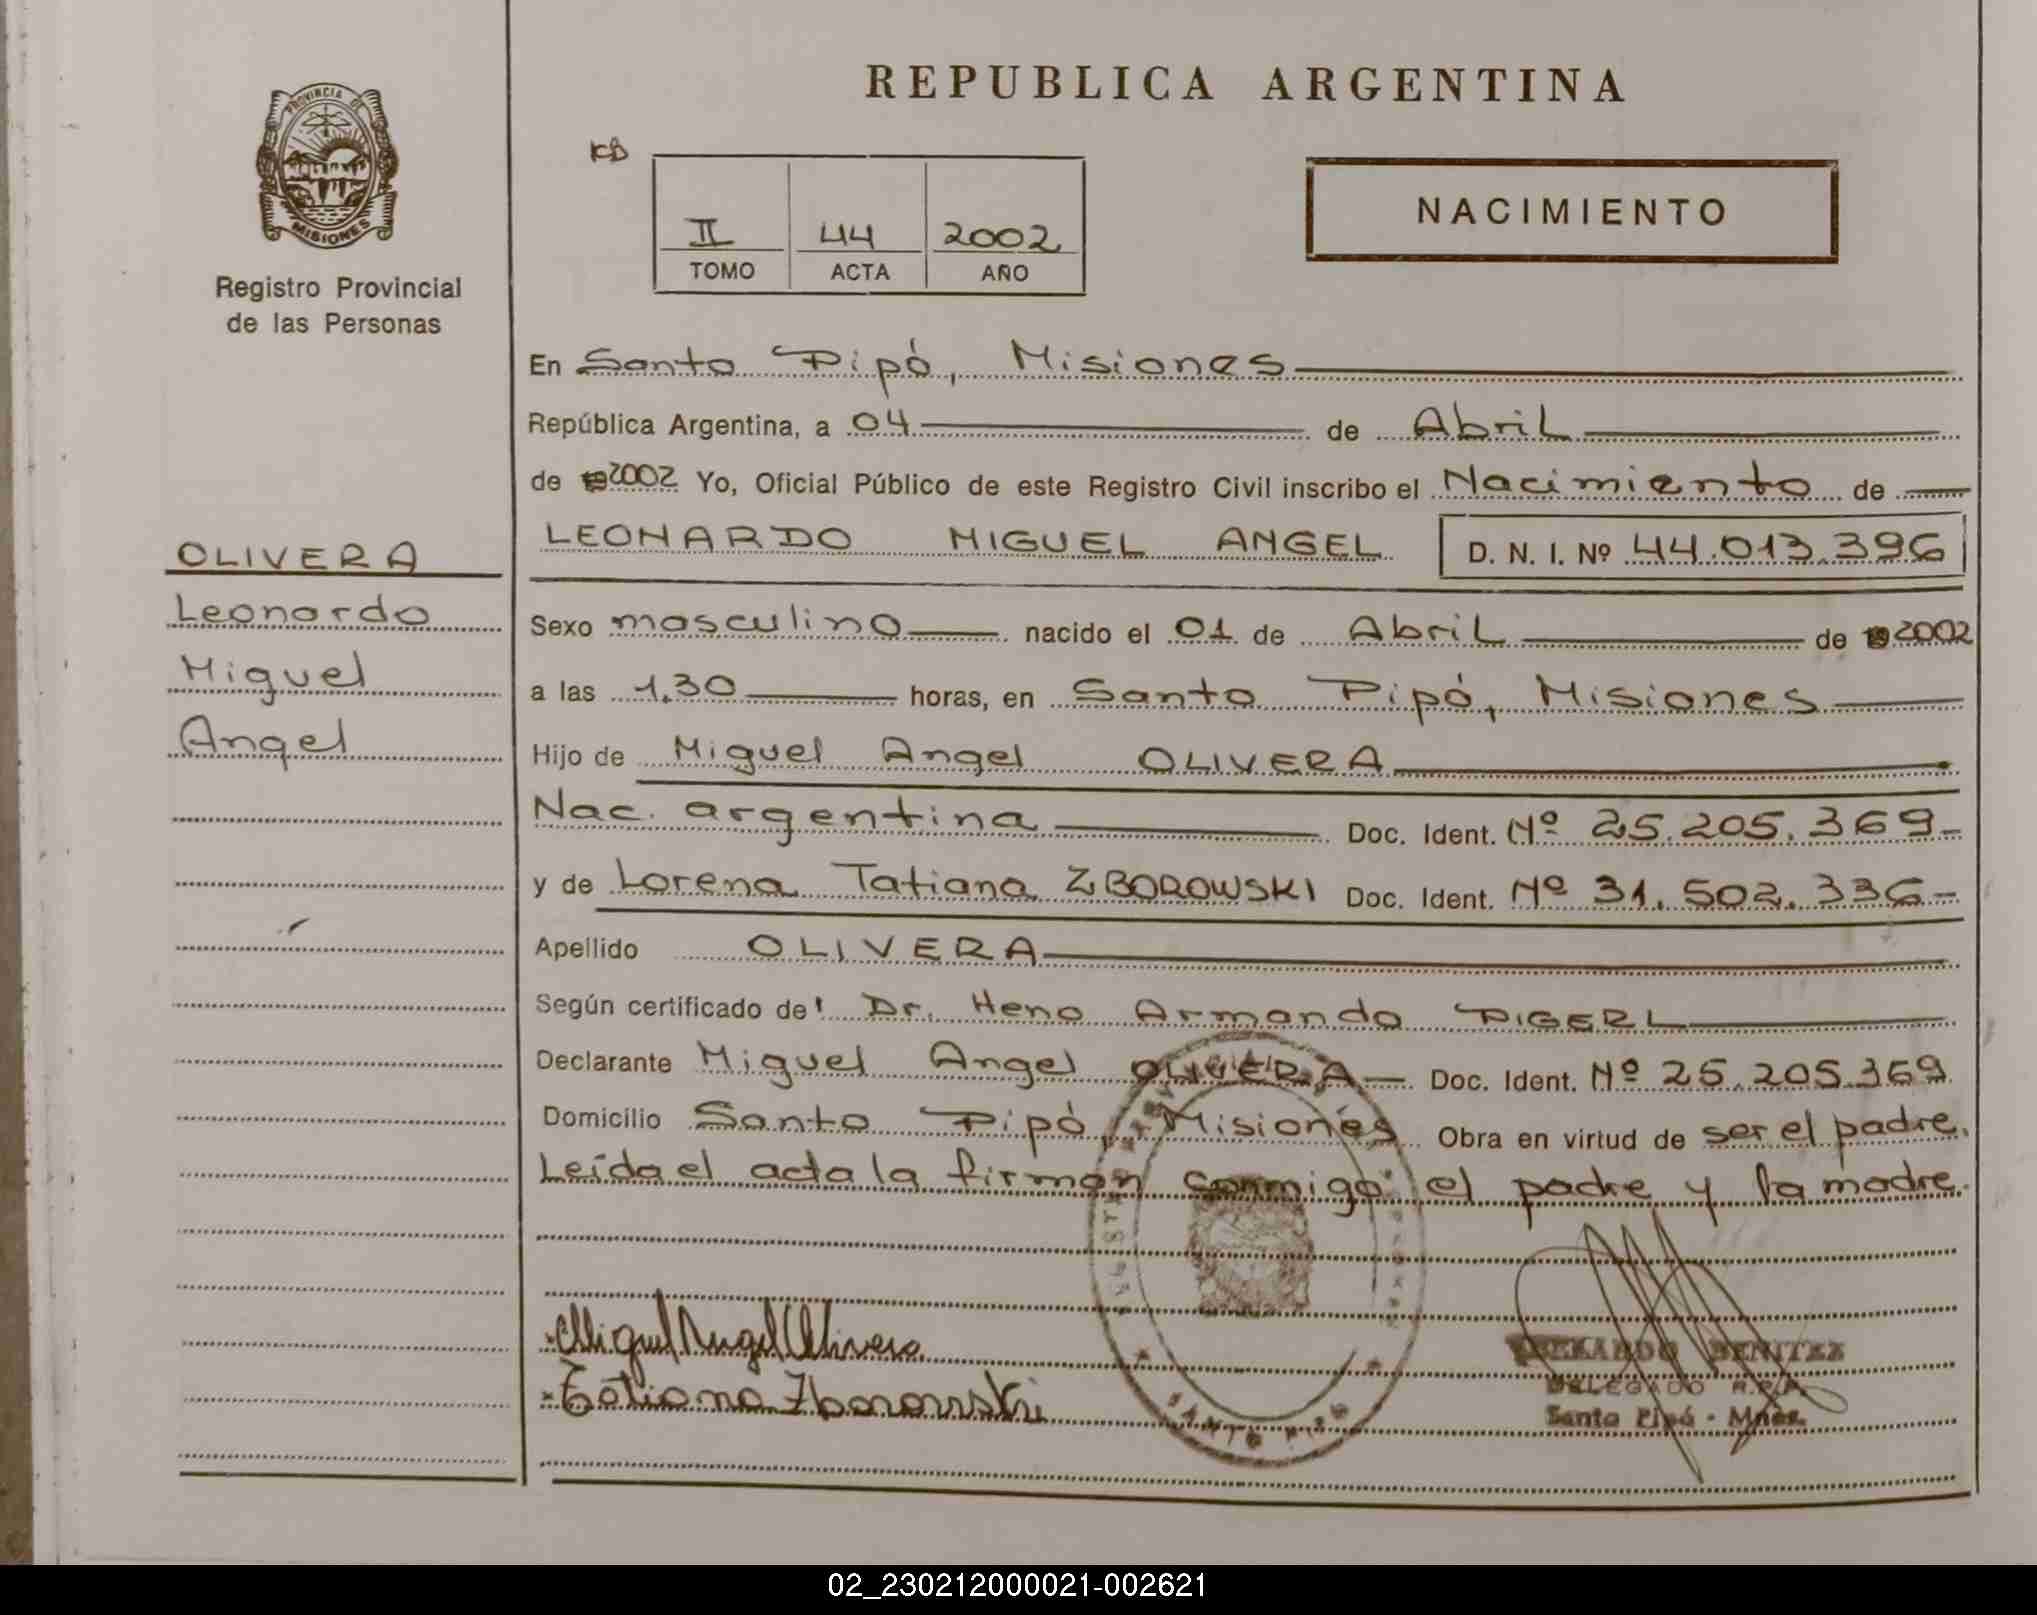 PROVINCIA DE
MISIONES
Registro Provincial
de las Personas
OLIVERA
Leonardo
Miguel
Angel
REPUBLICA ARGENTINA
KB
II 44 2002
TOMO ACTA AÑO
NACIMIENTO
En Santo Pipó, Misiones
República Argentina, a 04 de Abril
de 2002 Yo, Oficial Público de este Registro Civil inscribo el Nacimiento de
LEONARDO MIGUEL ANGEL D. N. I. Nº 44.013.396
Sexo masculino nacido el 01 de Abril de 2002
a las 1.30 horas, en Santo Pipó, Misiones
Hijo de Miguel Angel OLIVERA
Nac. argentina Doc. Ident. Nº 25.205.369-
y de Lorena Tatiana ZBOROWSKI Doc. Ident. Nº 31.502.336-
Apellido OLIVERA
Según certificado de Dr. Heno Armando PIGERL
Declarante Miguel Angel OLIVERA Doc. Ident. Nº 25.205.369
Domicilio Santo Pipó, Misiones Obra en virtud de ser el padre.
Leída el acta la firman conmigo el padre y la madre.
Miguel Angel Olivera
Tatiana Zborowski
BENITEZ
DELEGADO R.P.P.
Santo Pipó - Mnes.
02_230212000021-002621